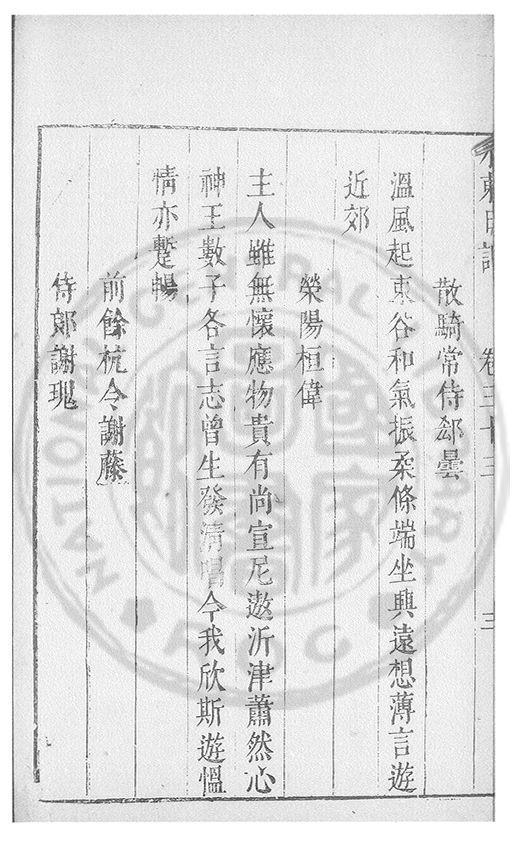 水東日記 卷三十三 三
散騎常侍郄曇
溫風起東谷和氣振柔條端坐興遠想薄言遊
近郊
榮陽桓偉
主人雖無懷應物貴有尚宣尼遨沂津蕭然心
神王數子各言志曾生發清唱今我欣斯遊慍
情亦蹔暢
前餘杭令謝藤
侍郎謝瑰